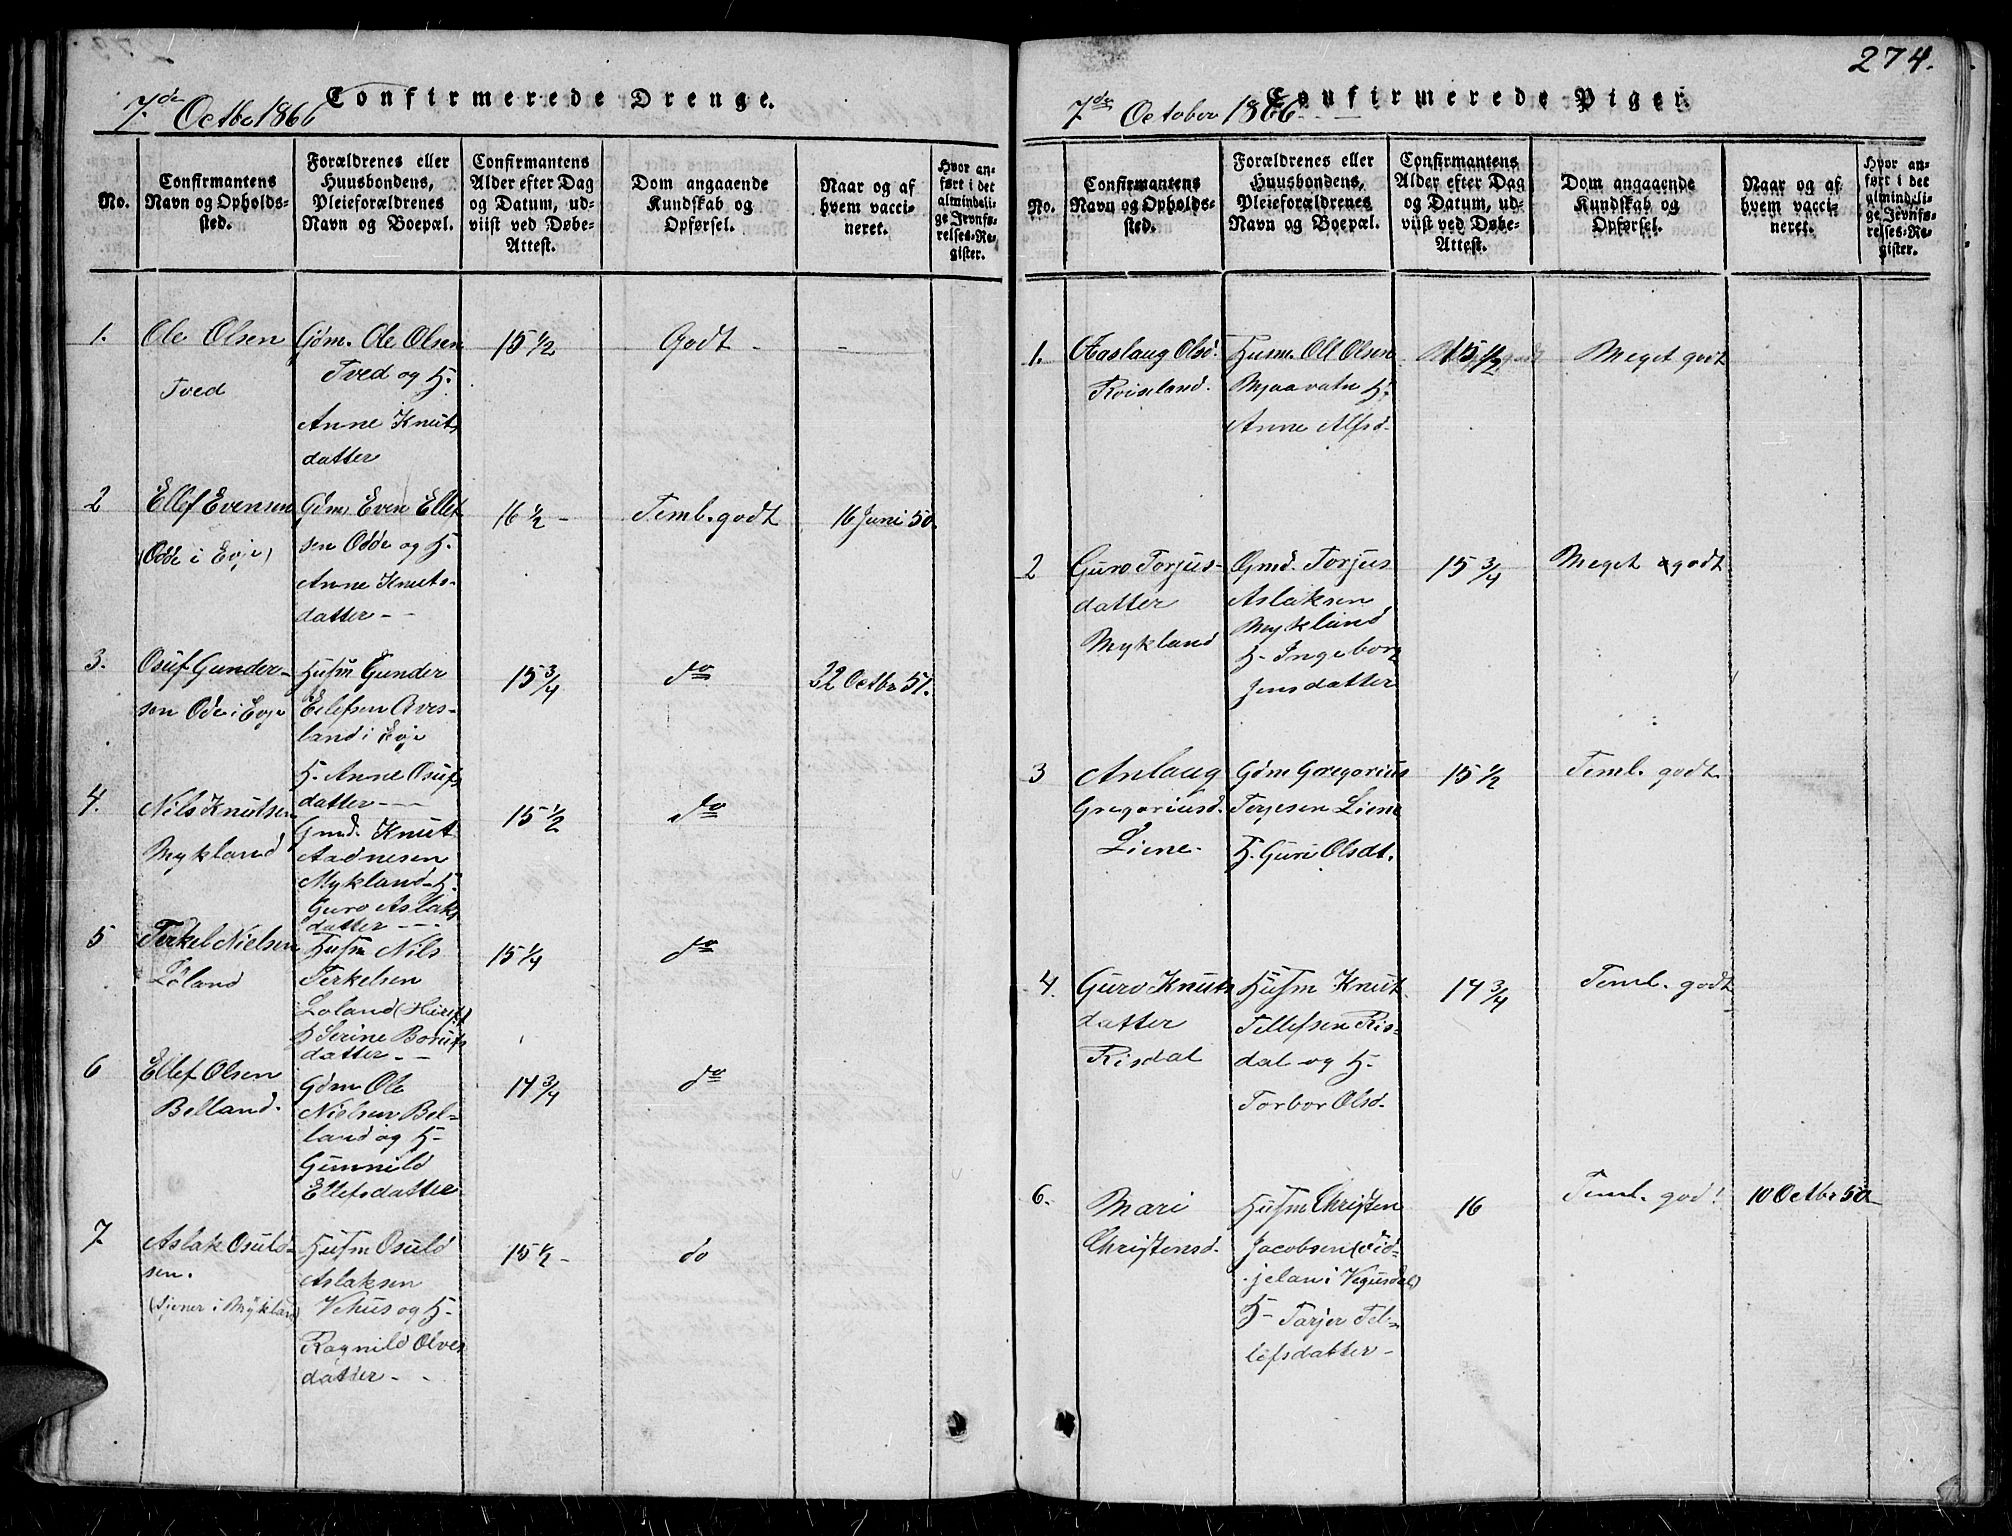 274.
Confirmerede Drenge.
7de Octbo 1866
No.
Confirmantens
Navn og Opholds-
sted.
Forældrenes eller
Huusbondens,
Pleieforældrenes
Navn og Boepæl.
Confirmantens
Alder efter Dag
og Datum, ud-
viist ved Døbe-
Attest.
Dom angaaende
Kundskab og
Opførsel.
Naar og af
hvem vacci-
neret.
Hvor an-
ført i det
almindeli-
ge Jevnfø-
relses-Re-
gister.
1.
Ole Olsen
Tved
Gdm. Ole Olsen
Tved og H.
Anne Knuts
datter
15 1/2
Godt -
-
2
Ellef Evensen
(Odde i Evje)
Gdm Even Ellef
sen Odde og H.
Anne Knuts-
datter - -
16 1/2 -
Teml. godt
16 Juni 50.
3.
Osuf Gunder-
sen Ode i Evje
Husm Gunder
Ellefsen Aves-
land i Evje
H. Anne Osufs
datter - -
15 3/4
do
22 Octbr 51.
4.
Nils Knutsen
Mykland
Gmd. Knut
Aadnesen
Mykland - H.
Guro Aslaks
datter - -
15 1/2
do
5
Terkel Nielsen
Løland
Husm Nils
Terkelsen
Løland
H Serine
datter - -
15 1/4
do
6
Ellef Olsen
Belland.
Gdm Ole
Nielsen Bel-
land og H-
Gunnild
Ellefsdatter
14 3/4
do
7
Aslak Osuld-
sen.
(tjener i Mykland)
Husm Osuld
Aslaksen
Vehus og H-
Ragnild Olves
datter - -
15 1/2 -
do
Confirmerede Piger.
7de October 1866
No.
Confirmantens
Navn og Opholds-
sted.
Forældrenes eller
Huusbondens,
Pleieforældrenes
Navn og Boepæl.
Confirmantens
Alder efter Dag
og Datum, ud-
viist ved Døbe-
Attest.
Dom angaaende
Kundskab og
Opførsel.
Naar og af
hvem vacci-
neret.
Hvor an-
ført i det
almindeli-
ge Jevnfø-
relses-Re-
gister.
1.
Aaslaug Olsd.
Roiseland.
Husm. Oll Olsen
Mjaavatn H.
Anne Alfsd-
15 1/2
Meget godt
2
Guro Torjus-
datter
Mykland
Gmd. Torjus
Aslaksen
Mykland
H- Ingeborg
Jensdatter
15 3/4
Meget godt
3
Anlaug
Gregoriusd.
Liene.
Gdm Gregorius
Terjesen Liene
H. Guri Olsdt.
15 1/2
Teml. godt
4.
Guro Knuts
datter
Risdal
Husm Knut
Tellefsen Ris-
dal og H-
Torbor Olsd-
14 3/4
Teml. godt
6.
Mari
Christensd.
Husm Christen
Jacobsen
i Vegusdal)
H- Tarjer Tel-
lefsdatter -
16
Teml. godt
10 Octbr 50